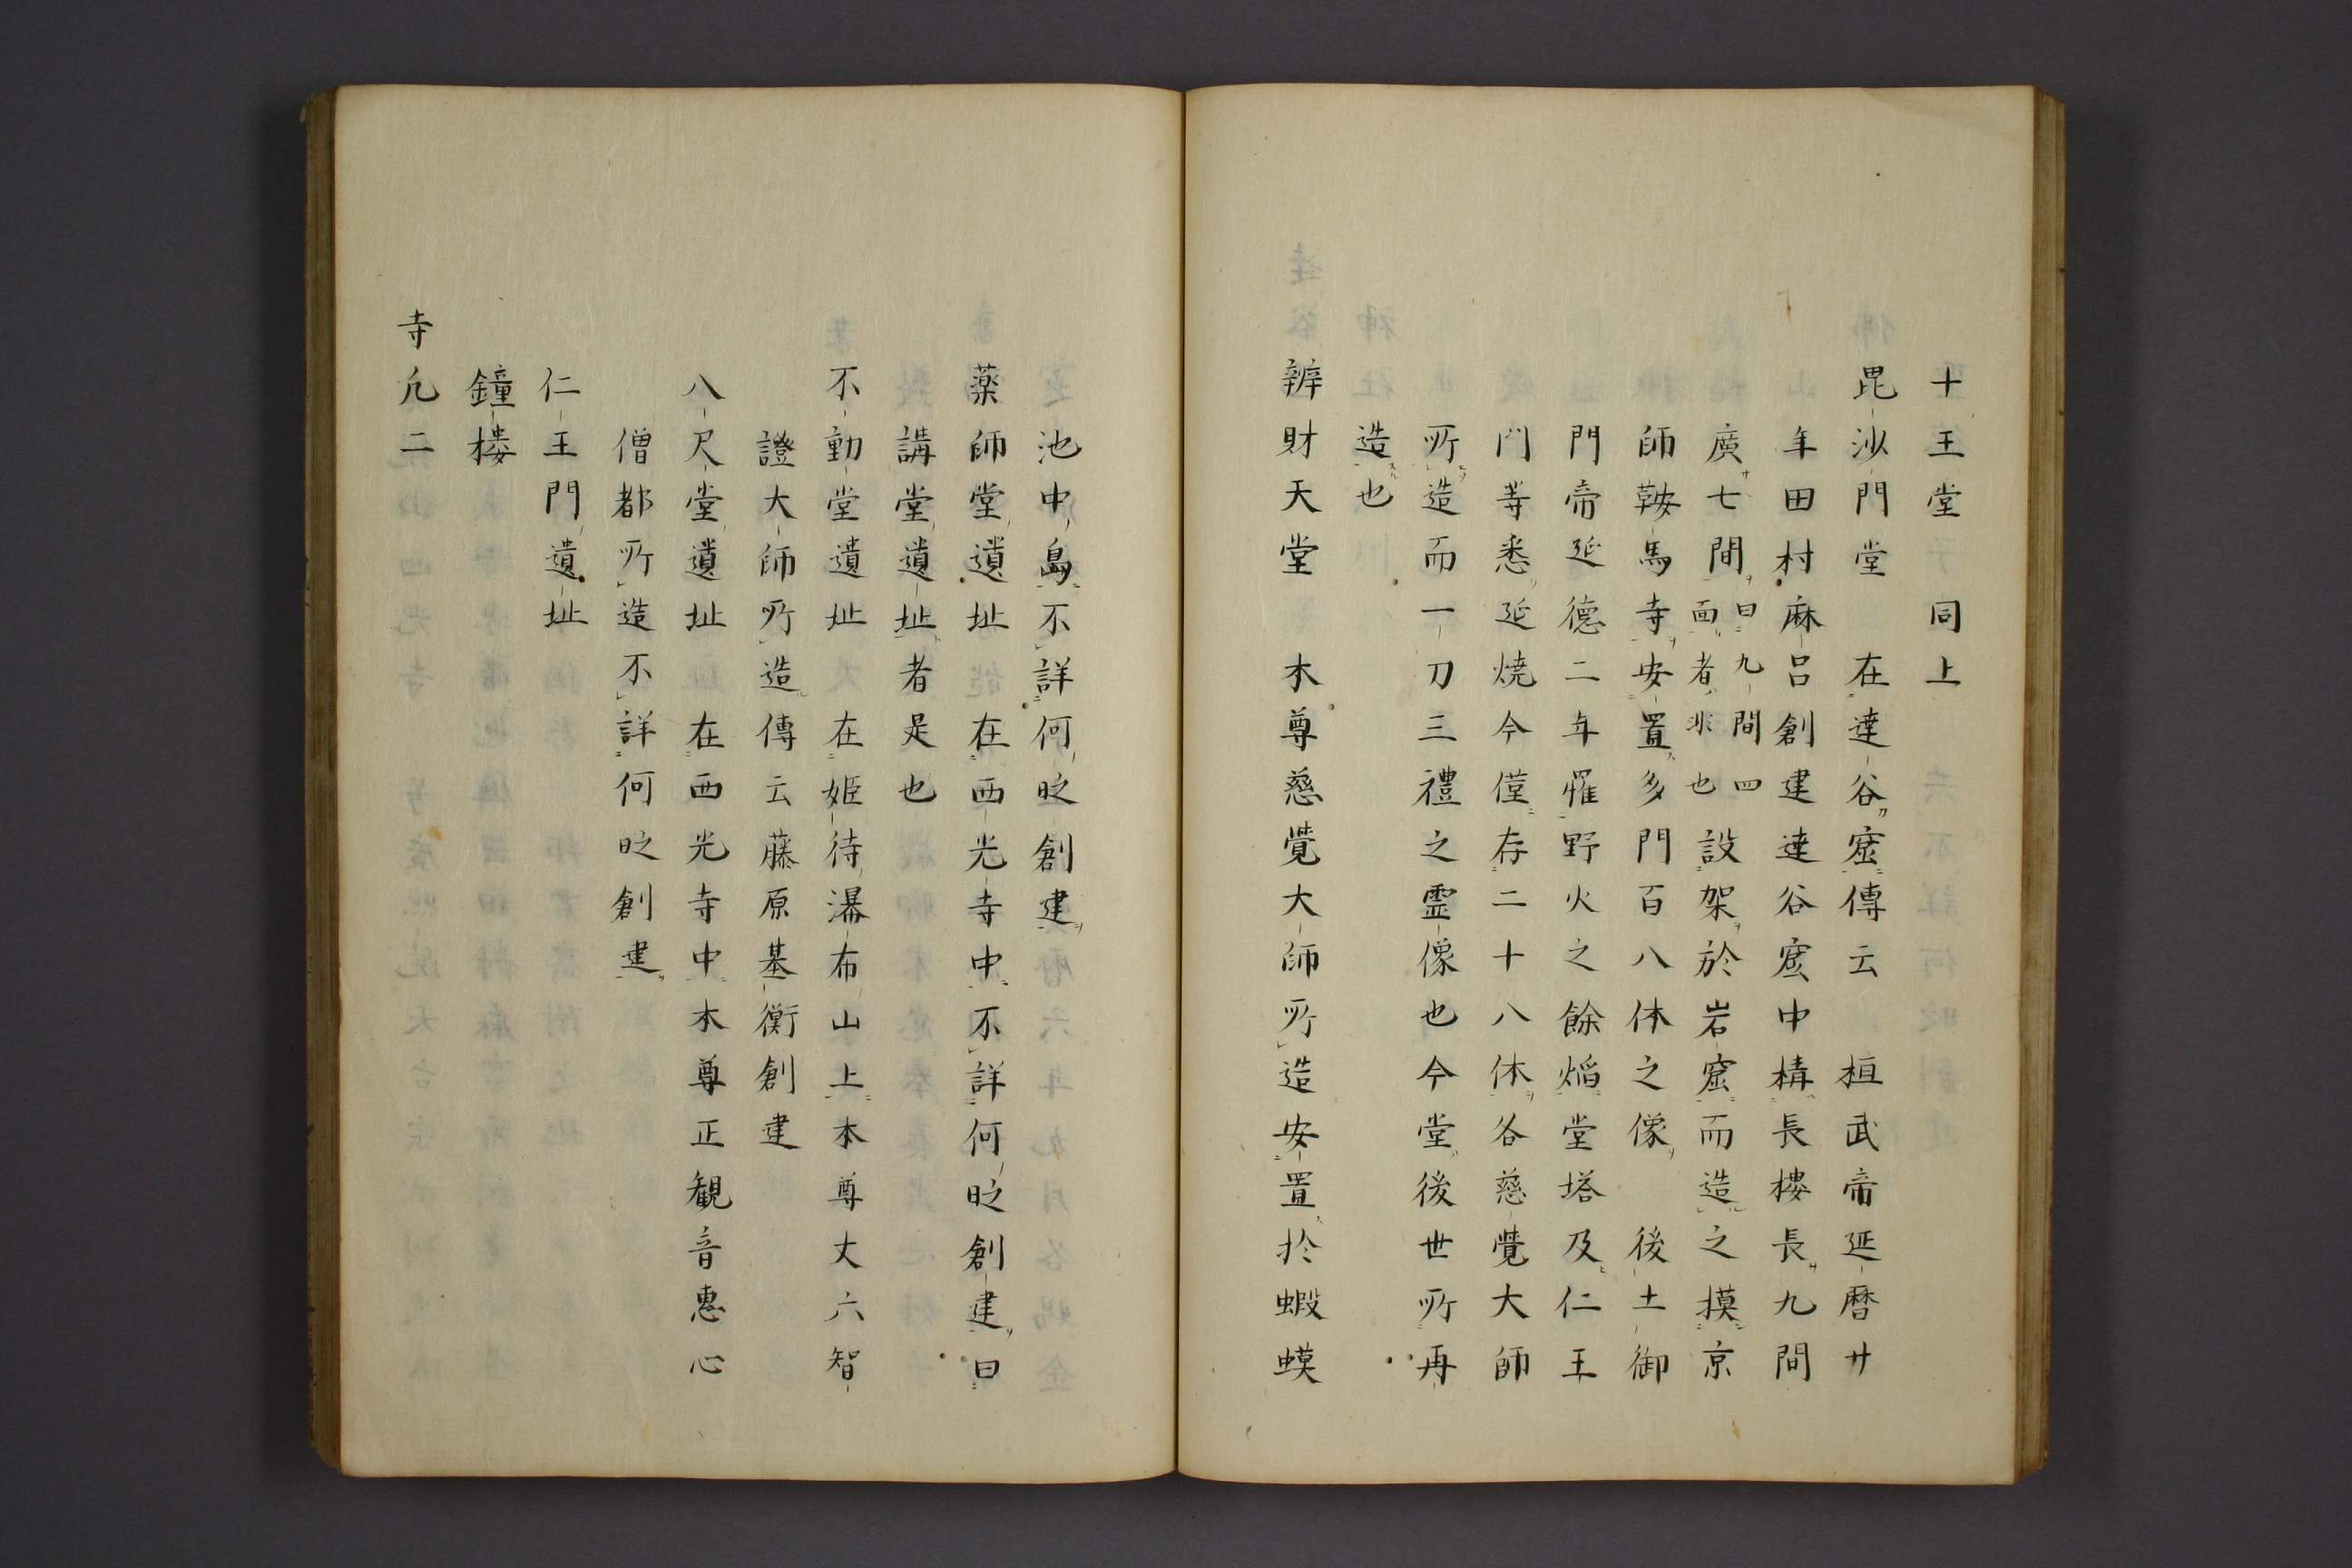 十王堂 同上
毘沙門堂 在達谷窟傳云 桓武帝延暦廿
年田村麻呂創建達谷窟中構長樓長九間
廣七間曰九間四面者非也設架於岩窟而造之摸京
師鞍馬寺安置多門百八体之像 後土御
門帝延德二年罹野火之餘焔堂塔及仁王
門等悉延焼今僅存二十八体各慈覺大師
所造而一刀三禮之霊像也今堂後世所再
造也
辨財天堂 木尊慈覺大師所造安置於蝦蟆
池中島不詳何时創建
薬師堂遺址 在西光寺中不詳何时創建曰
講堂遺址者是也
不動堂遺址 在姫待瀑布山上本尊丈六智
證大師所造傳云藤原基衡創建
八尺堂遺址 在西光寺中木尊正観音惠心
僧都所造不詳何时創建
仁王門遺址
鐘樓
寺凢二